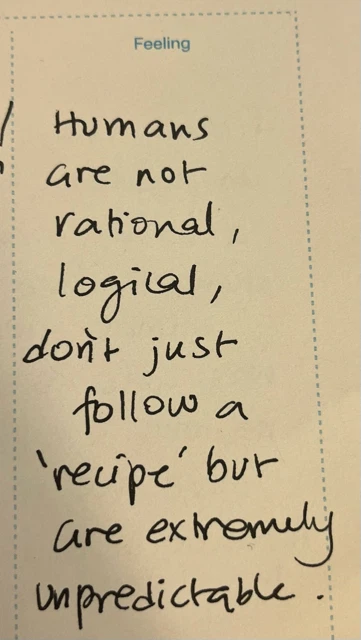 Feeling
Humans
are not
rational,
logical,
don't just
follow a
'recipe' but
are extremely
unpredictable.